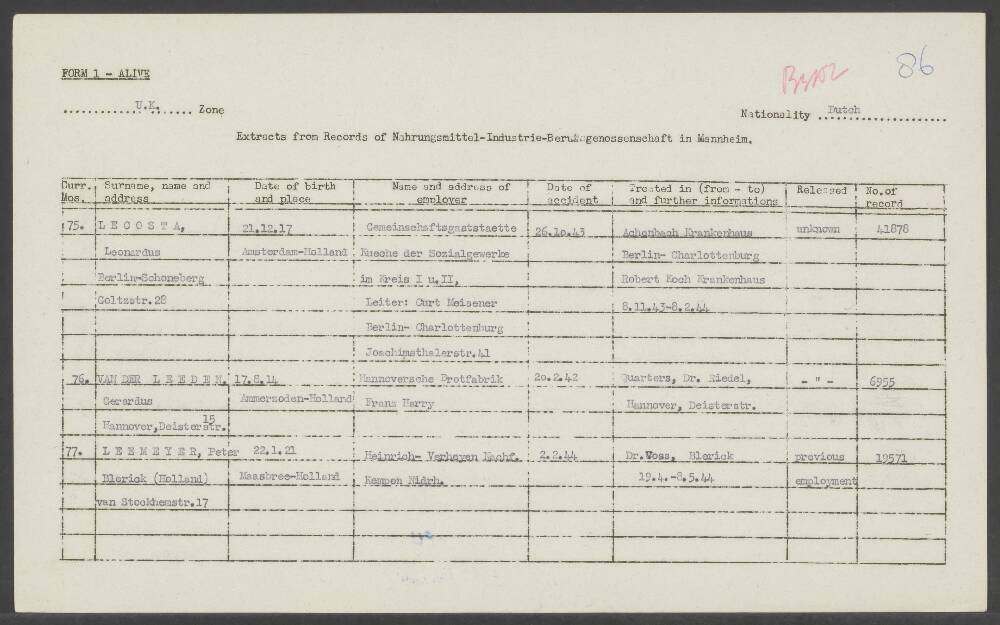 FORM 1 - ALIVE
86
U.K. Zone
Nationality Dutch
Extracts from Records of Nahrungsmittel-Industrie-Berufsgenossenschaft in Mannheim.
Curr. Surname, name and Date of birth Name and address of Date of Treated in (from - to) Released No.of
Nos. address and place employer accident and further informations record
75. LECOSTA, 21.12.17 Gemeinschaftsgaststaette 26.10.43 Achenbach Krankenhaus unknown 41878
Leonardus Amsterdam-Holland Kueche der Sozialgewerke Berlin- Charlottenburg
Berlin-Schoneberg im Kreis I u.II, Robert Koch Krankenhaus
Goltzstr.28 Leiter: Curt Meisener 8.11.43-8.2.44
Berlin- Charlottenburg
Joachimsthalerstr.41
76. VAN DER LEEDEN, 17.8.14 Hannoversche Brotfabrik 20.2.42 Quarters, Dr. Riedel, - " - 6955
Gerardus Ammerzoden-Holland Franz Harry Hannover, Deisterstr.
Hannover,Deisterstr. 15
77. LEEMEYER, Peter 22.1.21 Heinrich- Verhayen Nachf. 2.2.44 Dr.Voss, Blerick previous 19571
Blerick (Holland) Maasbree-Holland Kempen Ndrh. 19.4.-8.5.44 employment
van Stockhemstr.17